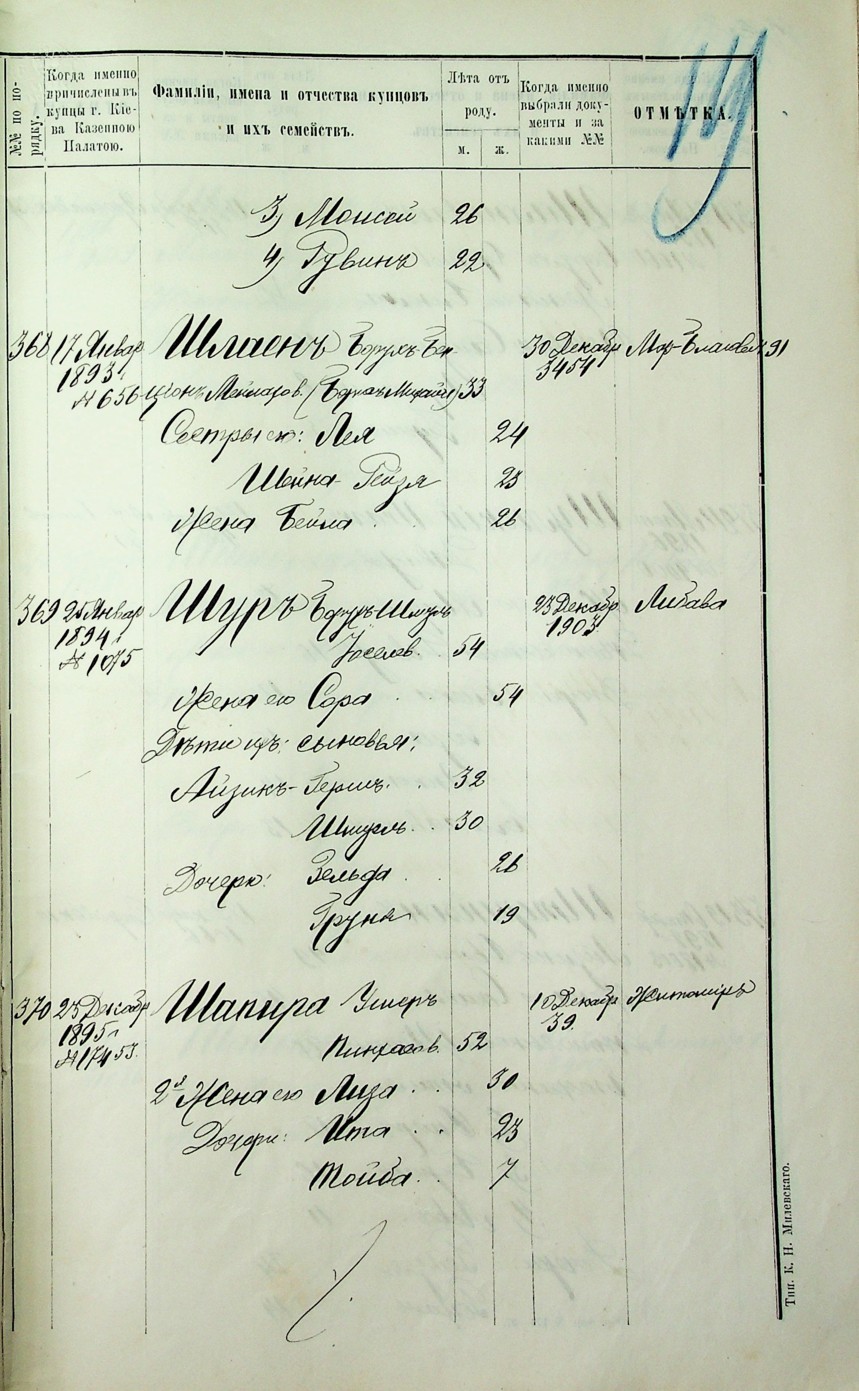 №№ по порядку.
Когда именно причислены въ купцы г. Кіева Казенною Палатою.
Фамиліи, имена и отчества купцовъ
и ихъ семействъ.
Лѣта отъ роду.
м.
ж.
Когда именно выбрали документы и за какими №№
ОТМѢТКА.
3) Моисей 26
4) Рувинъ 22
368 17 Январ Шлаенъ 30 Декабр
1893 г. 3454
№ 656 Ціонъ 33
Сестры его: Лея 24
Шейна-Рейзя 23
Жена Бейла 26
369 25 Январ Шуръ Шмуль 23 Декабр Либава
1894 г. 1903
№ 1075 Іоселев. 54
Жена его Сора 54
Дѣти ихъ: сыновья:
Айзикъ-Гершъ 32
Шмуль 30
Дочери: Зельда 26
Груня 19
370 23 Декабр Шапира Ушеръ 10 Декабр Житомiръ
1895 г. 39
№ 17453. Пинхасов. 52
2я Жена его Лиза 30
Дочери: Ита 23
Тойба 7
Тип. К. Н. Милевскаго.